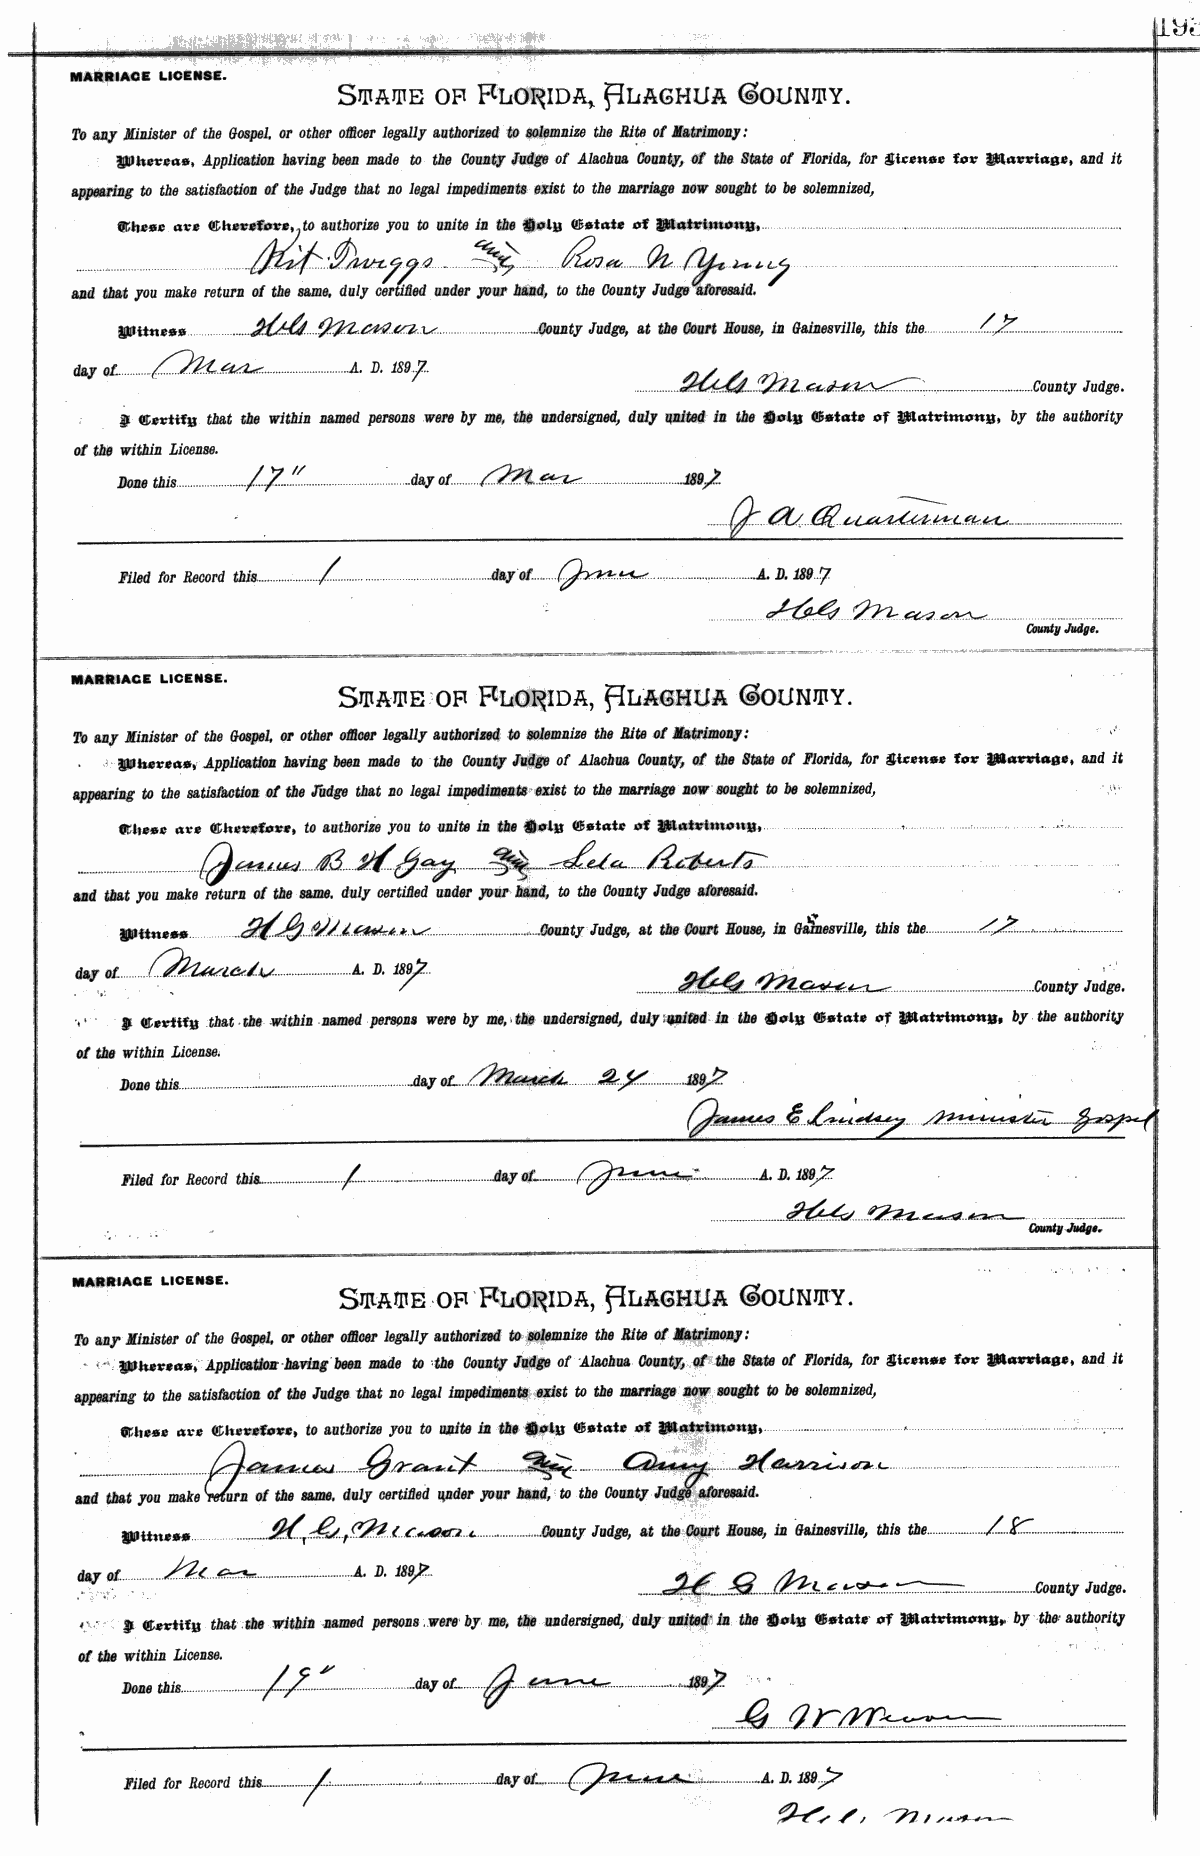 193
MARRIAGE LICENSE.
STATE OF FLORIDA, ALACHUA COUNTY.
To any Minister of the Gospel, or other officer legally authorized to solemnize the Rite of Matrimony:
Whereas, Application having been made to the County Judge of Alachua County, of the State of Florida, for License for Marriage, and it
appearing to the satisfaction of the Judge that no legal impediments exist to the marriage now sought to be solemnized,
These are Therefore, to authorize you to unite in the Holy Estate of Matrimony,
Kit Twiggs and Rosa N Young
and that you make return of the same, duly certified under your hand, to the County Judge aforesaid.
Witness H G Mason County Judge, at the Court House, in Gainesville, this the 17
day of Mar A. D. 1897
H G Mason County Judge.
I Certify that the within named persons were by me, the undersigned, duly united in the Holy Estate of Matrimony, by the authority
of the within License.
Done this 17" day of Mar 1897
J A Quarterman
Filed for Record this 1 day of June A. D. 1897
H G Mason
County Judge.
MARRIAGE LICENSE.
STATE OF FLORIDA, ALACHUA COUNTY.
To any Minister of the Gospel, or other officer legally authorized to solemnize the Rite of Matrimony:
Whereas, Application having been made to the County Judge of Alachua County, of the State of Florida, for License for Marriage, and it
appearing to the satisfaction of the Judge that no legal impediments exist to the marriage now sought to be solemnized,
These are Therefore, to authorize you to unite in the Holy Estate of Matrimony,
James B H Gay and Lela Roberts
and that you make return of the same, duly certified under your hand, to the County Judge aforesaid.
Witness H G Mason County Judge, at the Court House, in Gainesville, this the 17
day of March A. D. 1897
H G Mason County Judge.
I Certify that the within named persons were by me, the undersigned, duly united in the Holy Estate of Matrimony, by the authority
of the within License.
Done this day of March 24 1897
James E Lindsey Minister Gospel
Filed for Record this 1 day of June A. D. 1897
H G Mason
County Judge.
MARRIAGE LICENSE.
STATE OF FLORIDA, ALACHUA COUNTY.
To any Minister of the Gospel, or other officer legally authorized to solemnize the Rite of Matrimony:
Whereas, Application having been made to the County Judge of Alachua County, of the State of Florida, for License for Marriage, and it
appearing to the satisfaction of the Judge that no legal impediments exist to the marriage now sought to be solemnized,
These are Therefore, to authorize you to unite in the Holy Estate of Matrimony,
James Grant and Amy Harrison
and that you make return of the same, duly certified under your hand, to the County Judge aforesaid.
Witness H, G, Mason County Judge, at the Court House, in Gainesville, this the 18
day of Mar A. D. 1897
H G Mason County Judge.
I Certify that the within named persons were by me, the undersigned, duly united in the Holy Estate of Matrimony, by the authority
of the within License.
Done this 19" day of June 1897
G W
Filed for Record this 1 day of June A. D. 1897
H G Mason